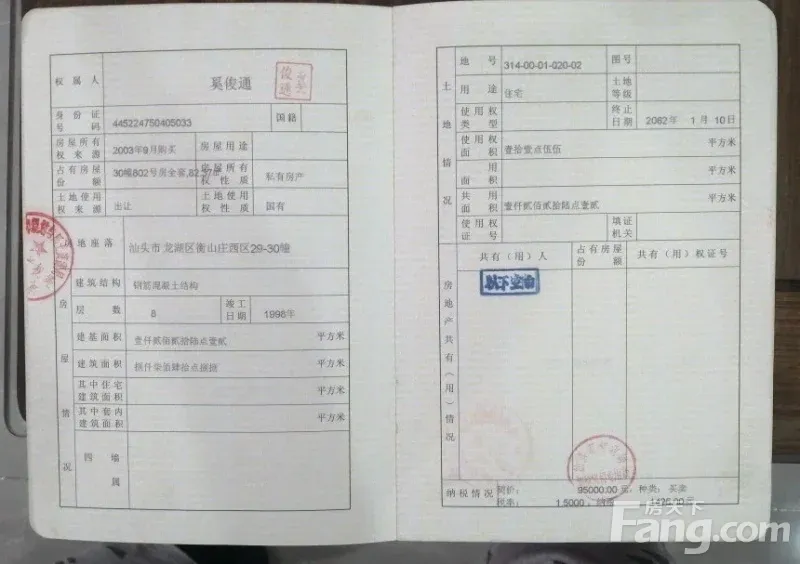 权属人 奚俊通
身份证号码 445224750405033 国籍
房屋所有权来源 2003年9月购买 房屋用途
占有房屋份额 30幢802号房全套,82.37㎡ 房屋所有权性质 私有房产
土地使用权来源 出让 土地使用权性质 国有
房屋情况
地座落 汕头市龙湖区衡山庄西区29-30幢
建筑结构 钢筋混凝土结构
层数 8 竣工日期 1998年
建基面积 壹仟贰佰贰拾陆点壹贰 平方米
建筑面积 捌仟柒佰肆拾点捌捌 平方米
其中住宅建筑面积 平方米
其中套内建筑面积 平方米
四墙属
土地情况
地号 314-00-01-020-02 图号
用途 住宅 土地等级
使用权类型 终止日期 2062年 1月 10日
使用权面积 壹拾壹点伍伍 平方米
用面积 平方米
共用面积 壹仟贰佰贰拾陆点壹贰 平方米
使用权证号 填证机关
房地产共有(用)情况
共有(用)人 占有房屋份额 共有(用)权证号
以下空白
纳税情况 契价: 95000.00元, 种类: 买卖
税率: 1.5000, 纳税 1425.00元
房天下
Fang.com